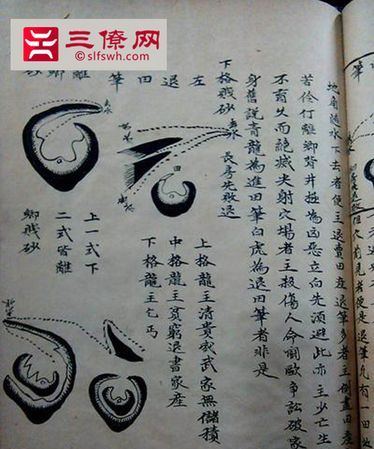 三僚网
slfswh.com
地角随水去者便主退賣田産退筆多者主倒盡田産
若伶仃離鄉背井極為凶惡立向先須避此亦主少亡生
不育久而絶滅尖射穴場者主殺傷人命鬪殴争訟破家
身舊說青龍為進田筆白虎為退田筆者非是
下格賤砂 長房先敗退
左退田筆
上格龍主清貴或武家無儲積
中格龍主貧窮退書家産
下格龍主乞丐
離鄉砂
上一式下
二式皆離
鄉賤砂